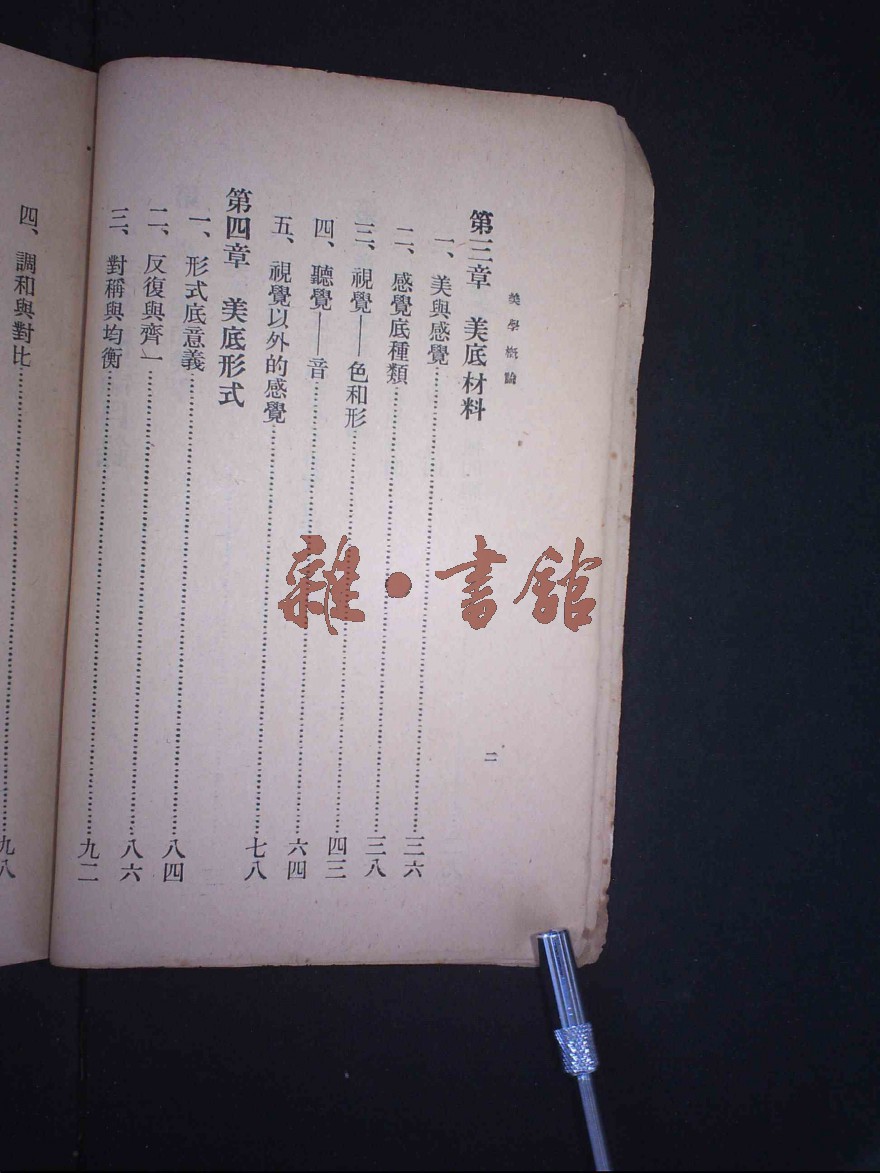 美學概論
二
第三章 美底材料
一、美與感覺……三六
二、感覺底種類……三八
三、視覺——色和形……四三
四、聽覺——音……六四
五、視覺以外的感覺……七八
第四章 美底形式
一、形式底意義……八四
二、反復與齊一……八六
三、對稱與均衡……九二
四、調和與對比……九八
雜·書館